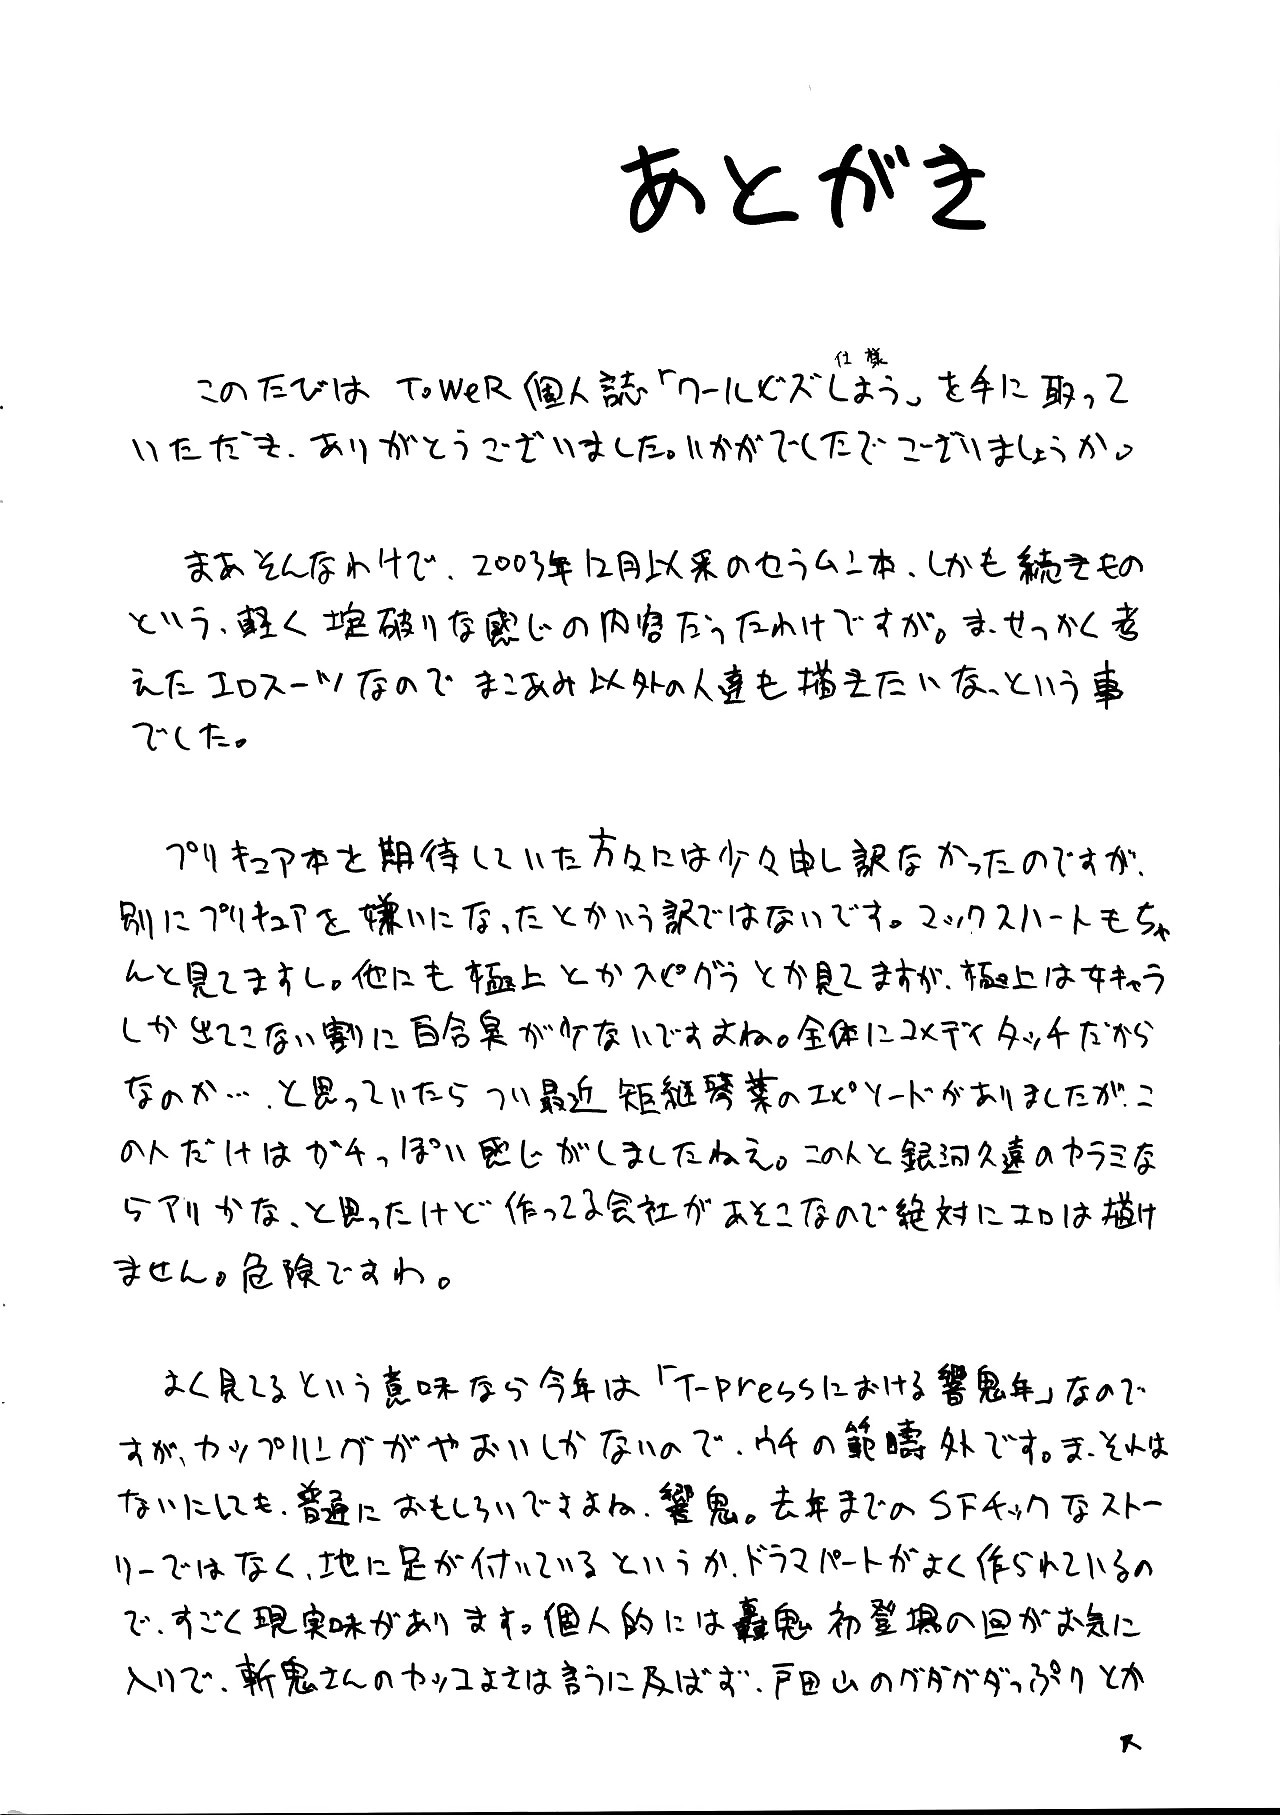 あとがき
仕様
このたびは ToWeR個人誌「ワールどズしよう」を手に取って
いただき、ありがとうございました。いかがでしたでございましょうか。
まあそんなわけで、2003年12月以来のセラムン本、しかも続きもの
という、軽く掟破りな感じの内容だったわけですが。ま、せっかく考
えたエロスーツなのでまこあみ以外の人達も描きたいなっという事
でした。
プリキュア本を期待していた方々には少々申し訳なかったのですが、
別にプリキュアを嫌いになったとかいう訳ではないです。マックスハートもちゃ
んと見てますし。他にも極上とかスピグラとか見てますが、極上は女キャラ
しか出てこない割に百合臭が少ないですよね。全体にコメディタッチだから
なのか…、と思っていたらつい最近矩継琴葉のエピソードがありましたが、こ
の人だけはガチっぽい感じがしましたねえ。この人と銀河久遠のカラミな
らアリかな、と思ったけど作ってる会社があそこなので絶対にエロは描け
ません。危険ですわ。
よく見てるという意味なら今年は「T-pressにおける響鬼年」なので
すが、カップリングがやおいしかないので、ウチの範疇外です。ま、それは
ないにしても、普通におもしろいですよね、響鬼。去年までのSFチックなストー
リーではなく、地に足が付いているというか、ドラマパートがよく作られているの
で、すごく現実味があります。個人的には轟鬼初登場の回がお気に
入りで、斬鬼さんのカッコよさは言うに及ばず、戸田山のグダグダっぷりとか